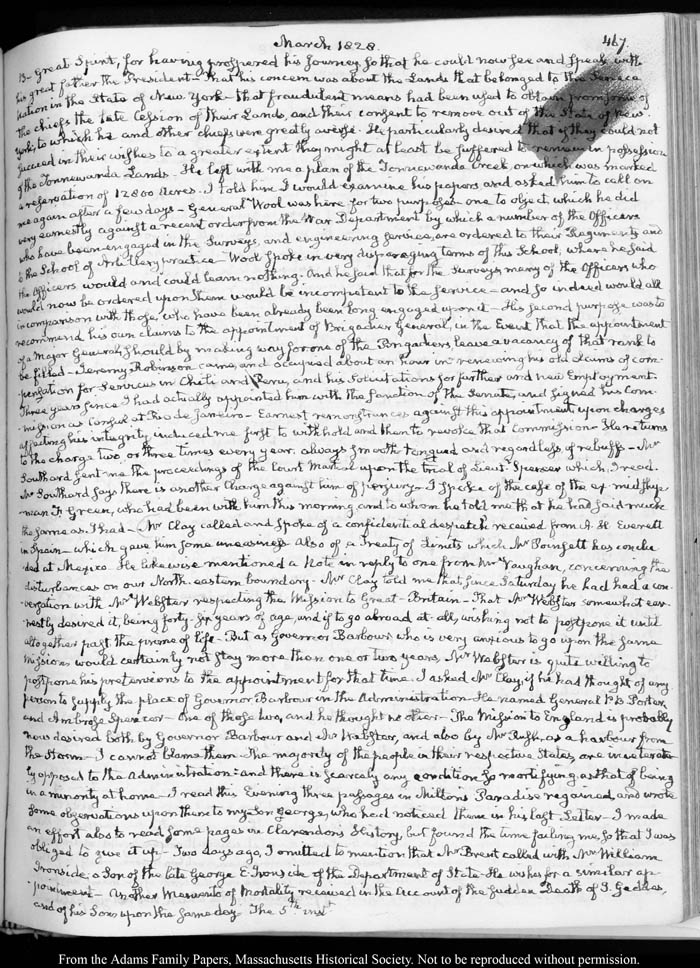 March 1828.
467.
13— Great Spirit, for having prospered his Journey, so that he could now see and speak with
his great father the President— That his concern was about the Lands that belonged to the Seneca
Nation in the State of New York— that fraudulent means had been used to obtain from some of
the chiefs the late Cession of their Lands, and their consent to remove out of the State of New
York; to which he and other chiefs were greatly averse. He particularly desired that if they could not
succeed in their wishes to a greater extent they might at least be suffered to remain in possession
of the Tonnewanda Lands— He left with me a plan of the Tonnewanda Creek on which was marked
a reservation of 12800 Acres. I told him I would examine his papers and asked him to call on
me again after a few days— General Wool was here for two purposes— one to object, which he did
very earnestly against a recent order from the War Department by which a number of the Officers
who have been engaged in the Surveys, and engineering service, are ordered to their Regiments and
to the School of Artillery practice— Wool spoke in very disparaging terms of this School, where he said
the Officers would and could learn nothing. And he said that for the Surveys many of the Officers who
would now be ordered upon them would be incompetent to the service— and so indeed would all
in comparison with those, who have been already been long engaged upon it— His second purpose was to
recommend his own claims to the appointment of Brigadier General, in the Event that the appointment
of a Major General, should by making way for one of the Brigadiers, leave a vacancy of that rank to
be filled— Jeremy Robinson came, and occupied about an hour in renewing his old claims of com-
pensation for services in Chili and Peru, and his solicitations for further and new Employment.
Three years since I had actually appointed him with the sanction of the Senate, and signed his Com-
mission as Consul at Rio de Janeiro— Earnest remonstrances against this appointment, upon charges
affecting his integrity induced me first to withhold and then to revoke that Commission— He returns
to the charge two or three times every year. always smooth tongued and regardless of rebuffs— Mr
Southard sent me the proceedings of the Court Martial upon the trial of Lieutt Spencer which I read.
Mr Southard says there is another Charge against him of perjury— I spoke of the case of the ex-midship-
man F. Green, who had been with him this morning and to whom he told me that he had said much
the same as I had— Mr Clay called and spoke of a confidential despatch received from A. H. Everett
in Spain— which gave him some uneasiness Also of a Treaty of Limits which Mr Poinsett has conclu-
ded at Mexico. He likewise mentioned a Note in reply to one from Mr Vaughan, concerning the
disturbances on our North-eastern boundary— Mr Clay told me that since Saturday he had had a con-
versation with Mr Webster respecting the Mission to Great-Britain— That Mr Webster somewhat ear-
nestly desired it, being forty-six years of age, and if to go abroad at all, wishing not to postpone it until
altogether past the prime of life— But as Governor Barbour who is very anxious to go upon the same
missions would certainly not stay more than one or two years, Mr Webster is quite willing to
postpone his pretensions to the appointment for that time. I asked Mr Clay, if he had thought of any
person to supply the place of Governor Barbour in the Administration— He named General P. B. Porter,
and Ambrose Spencer— One of those two, and he thought no other— The Mission to England is probably
now desired both by Governor Barbour and Mr Webster, and also by Mr Rush, as a harbour from
the storm— I cannot blame them— The majority of the people in their respective States, are inveterate-
ly opposed to the Administration: and there is scarcely any condition so mortifying as that of being
in a minority at home— I read this Evening three passages in Milton's Paradise regained, and wrote
some observations upon them to my Son George, who had noticed them in his last Letter— I made
an effort also to read some pages in Clarendon's History, but found the time failing me, so that I was
obliged to give it up— Two days ago, I omitted to mention that Mr Brent called with Mr William
Ironside, a Son of the late George E. Ironside of the Department of State— He wishes for a similar ap-
pointment— Another Memento of Mortality received in the Account of the sudden Death of S. Geddes,
and of his Son upon the same day— The 5th inst
From the Adams Family Papers, Massachusetts Historical Society. Not to be reproduced without permission.